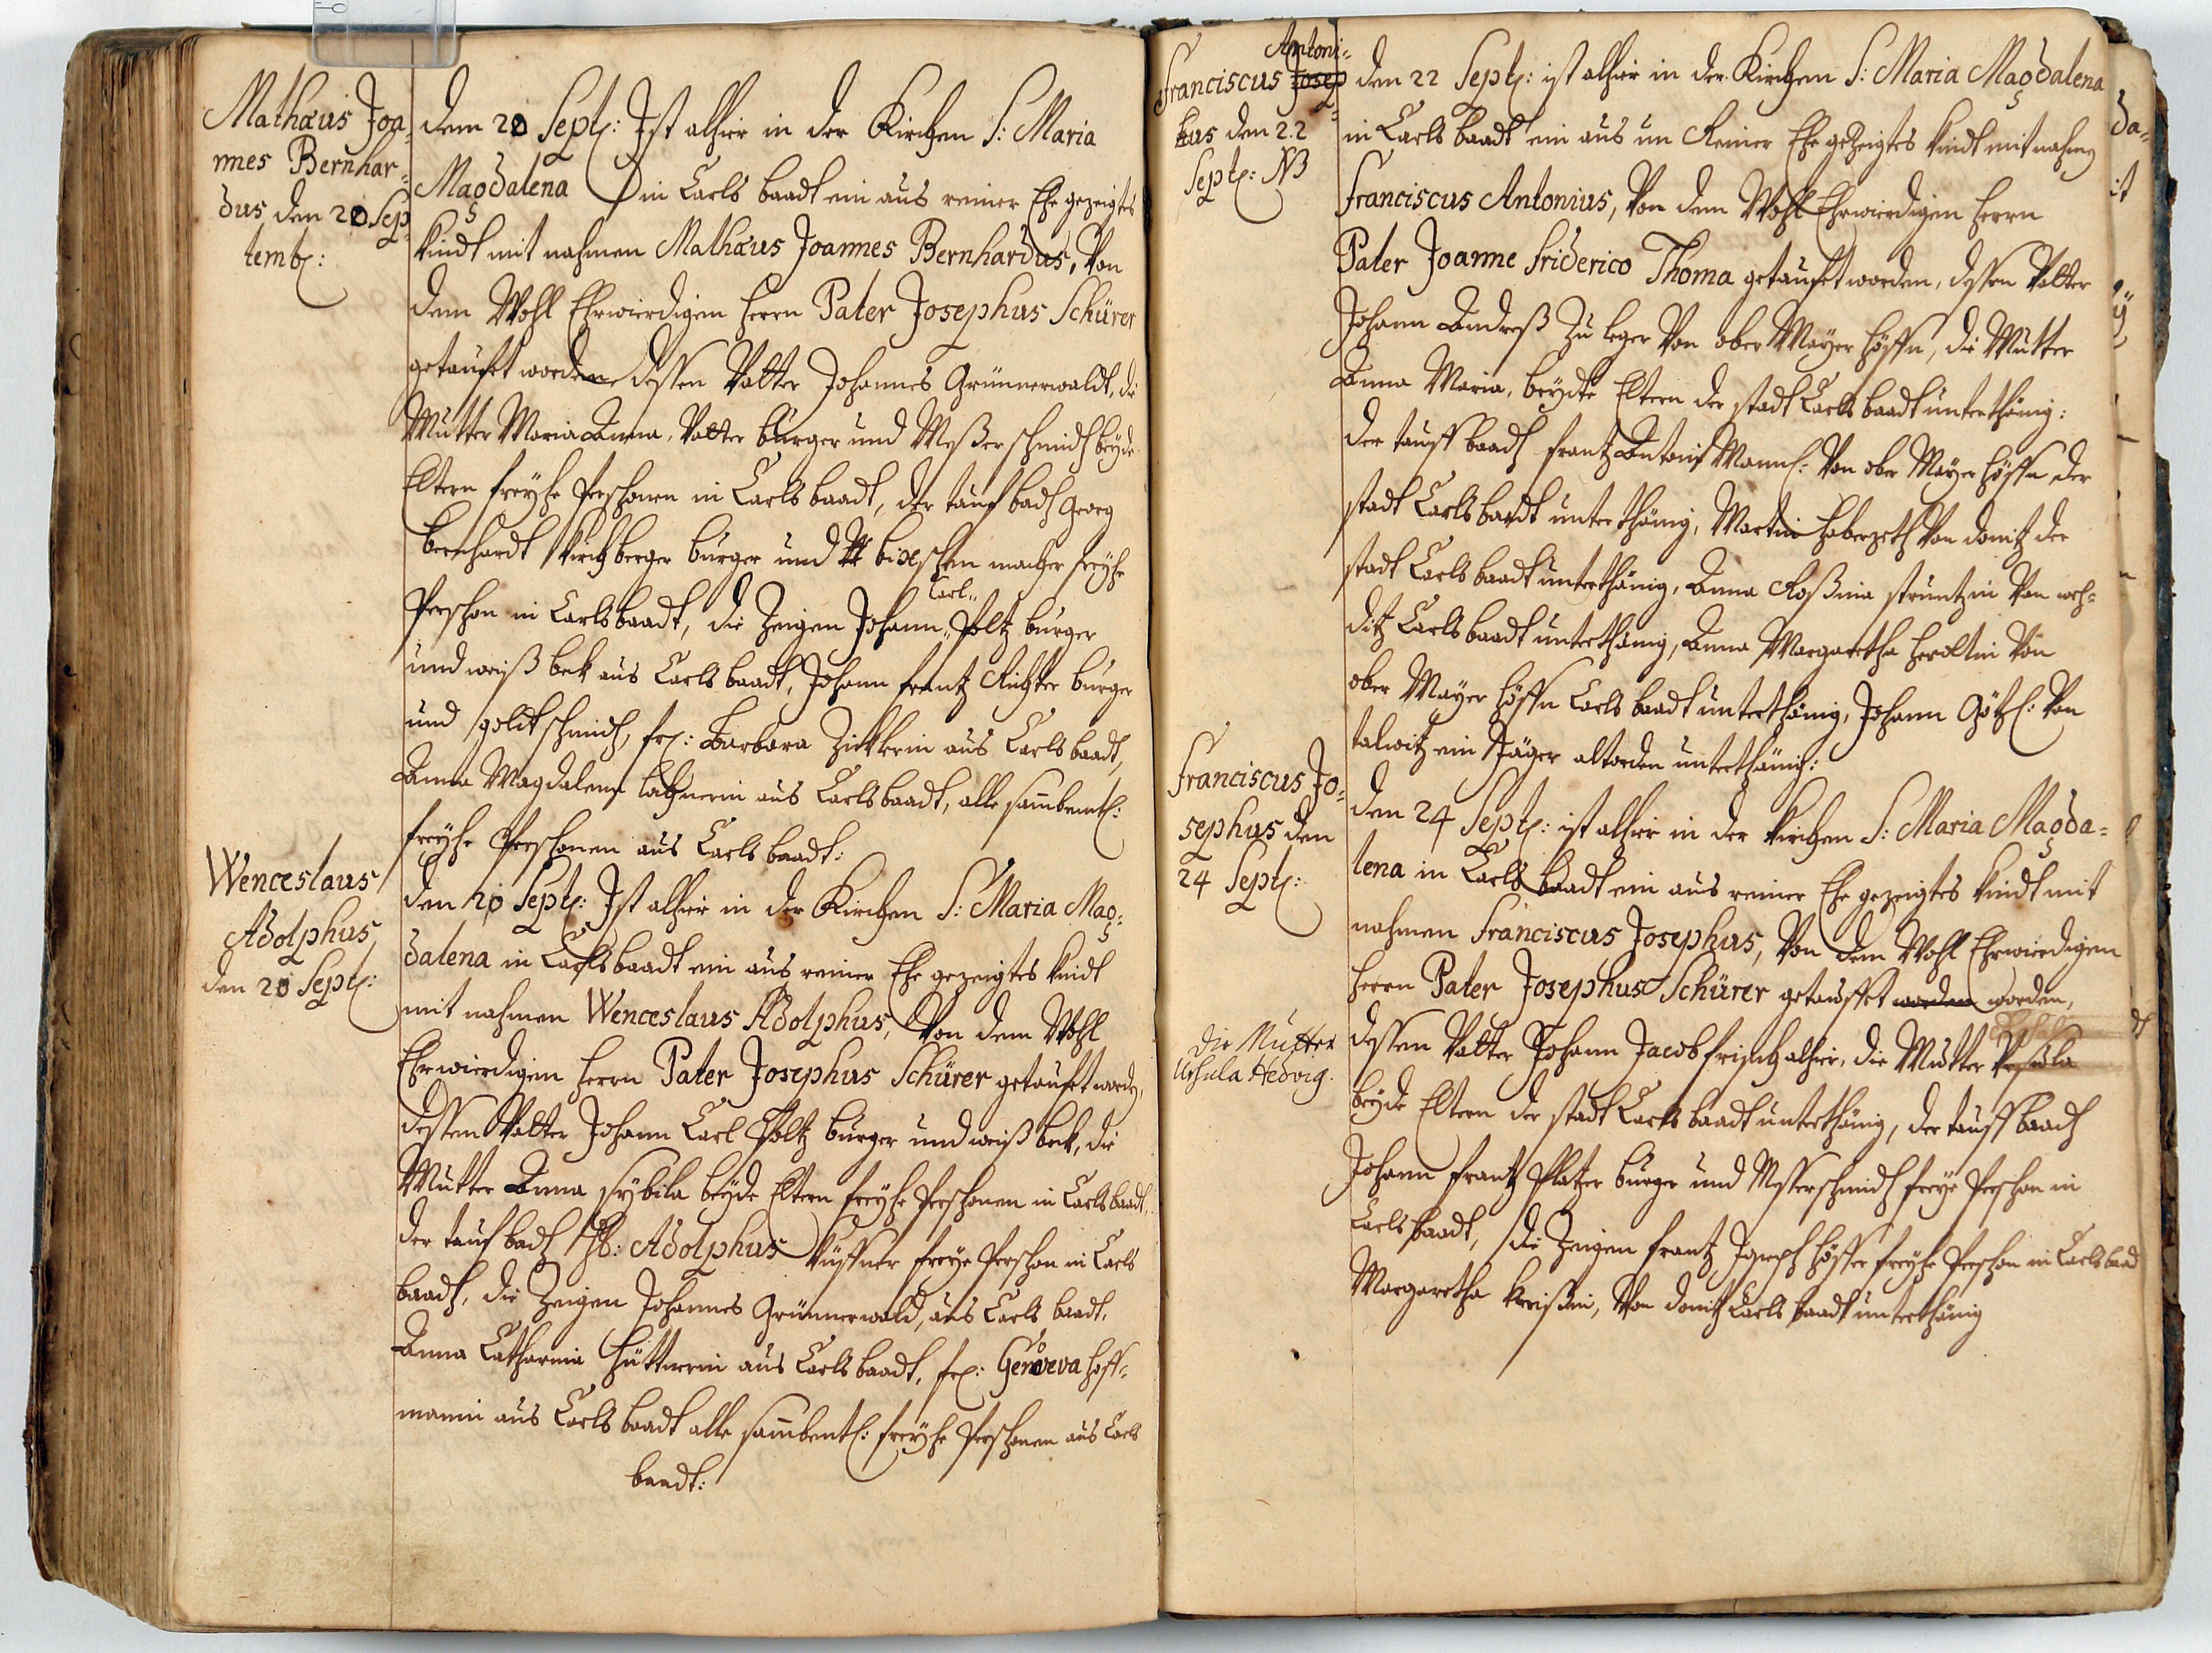 Mathæus Joa-
nnes Bernhar-
dus den 20 Sep
temb:
dem 20 Sept: Ist alhier in der Kirchen S: Maria
Magdalena in Carls baadt ein aus reiner Ehe gezeigtes
Kindt mit nahmen Mathæus Joannes Bernhardus, Von
dem Wohl Ehrwierdigen Herrn Pater Josephus Schürer
getauft worden dessen Vatter Johannes Grünnerwaldt, die
Mutter Maria Anna, Vatter burger und Meßer schmidt beyde
Eltern freyhe Perschonen in Carls baadt, der tauf badt Georg
bernhardt Kirchberger burger und bixschen macher freyhe
Carl"
Perschon in Carlsbaadt, die Zeigen Johann" Poltz burger
und weiß bek aus Carls baadt, Johann frantz Richter burger
und goldtschmidt, fr: Barbara Zickerin aus Carls baadt,
Anna Magdalena aus Carlsbaadt, alle sambentl:
freyhe Perschonen aus Carls baadt:
Wenceslaus
Adolphus
den 20 Sept:
den 20 Sept: Ist alhier in der Kirchen S: Maria Mag-
dalena in Carls baadt ein aus reiner Ehe gezeigtes Kindt
mit nahmen Wenceslaus Adolphus, Von dem Wohl
Ehrwierdigen Herrn Pater Josephus Schürer getauft worden,
dessen Vatter Johann Carl Poltz burger und weiß bek, die
Mutter Anna sybila beyde Eltern freyhe Perschonen in Carls baadt,
der tauf badt Adolphus freye Perschon in Carls
baadt, die Zeigen Johannes Grünnerwald, aus Carls baadt,
Anna Catharina Hüttnerin aus Carls baadt, fr: Genoveva Hoff-
manin aus Carls baadt alle sambentl: freyhe Perschonen aus Carls
baadt:
Antoni-
Franciscus Josep
hus den 22
Sept: NB
den 22 Sept: ist alhier in der Kirchen S: Maria Magdalena
in Carls baadt ein aus un Reiner Ehe gezeigtes Kindt mit nahmen
Franciscus Antonius, Von dem Wohl Ehrwierdigen Herrn
Pater Joanne Friderico Thoma getauft worden, dessen Vatter
Johann Andreß Zuleger Von ober Mayer Höffen, die Mutter
Anna Maria, beyde Eltern der stadt Carls baadt unterthänig:
der tauff baadt frantz Antoni Mannl: Von ober Mayer Höffen der
stadt Carls baadt unterthänig, Martin Haberzeth Von donitz der
stadt Carls baadt unterthänig, Anna Roßina struntzin Von weh-
ditz Carls baadt unterthänig, Anna Margaretha Heroltin Von
ober Mayer Höffen Carls baadt unterthänig, Johann Götzl: Von
talwitz ein Jäger unterthänig:
Franciscus Jo-
sephus den
24 Sept:
den 24 Sept: ist alhier in der Kirchen S: Maria Magda-
lena in Carls baadt ein aus reiner Ehe gezeigtes Kindt mit
nahmen Franciscus Josephus, Von dem Wohl Ehrwierdigen
Herrn Pater Josephus Schürer getauffet worden worden,
die Mutter
Ursula Hedvig.
dessen Vatter Johann Jacob frisch alhier, die Mutter Ursula
beyde Eltern der stadt Carls baadt unterthänig, der tauff baadt
Johann frantz Platzer burger und Messerschmidt freye Perschon in
Carls baadt, die Zeigen frantz Joseph Höffer freyhe Perschon in Carls baad
Margaretha Von donitz Carls baadt unterthänig